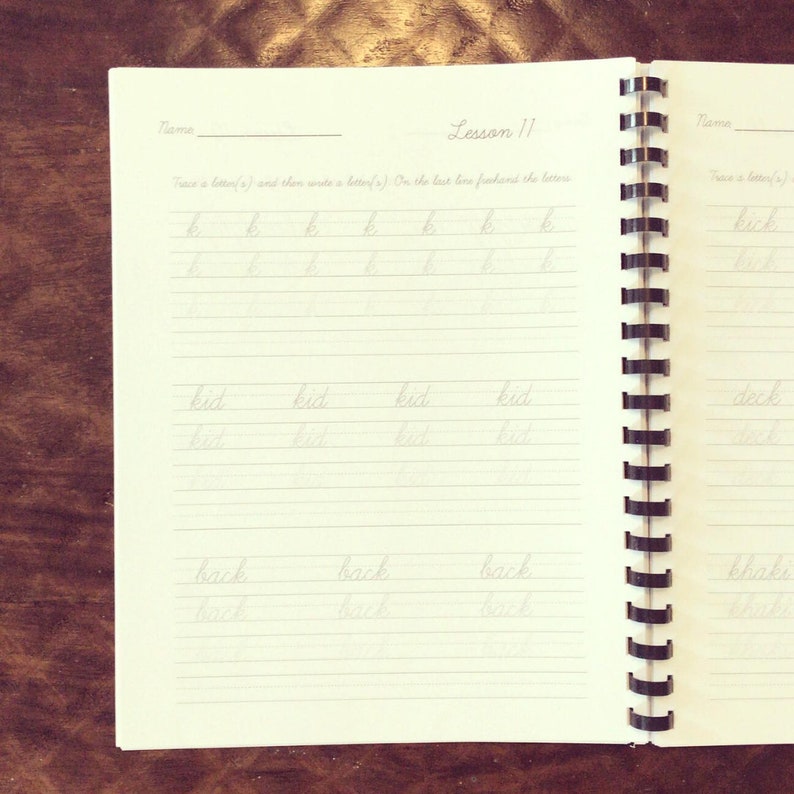 Name
Lesson 11
Trace a letter(s) and then write a letter(s). On the last line freehand the letters
k k k k k k k
k k k k k k k
k k k k k k
kid kid kid kid
kid kid kid kid
kid kid kid kid
back back back
back back back
back back back
Name
Trace a letter(s)
kick
kick
kick
deck
deck
deck
khaki
khaki
khaki